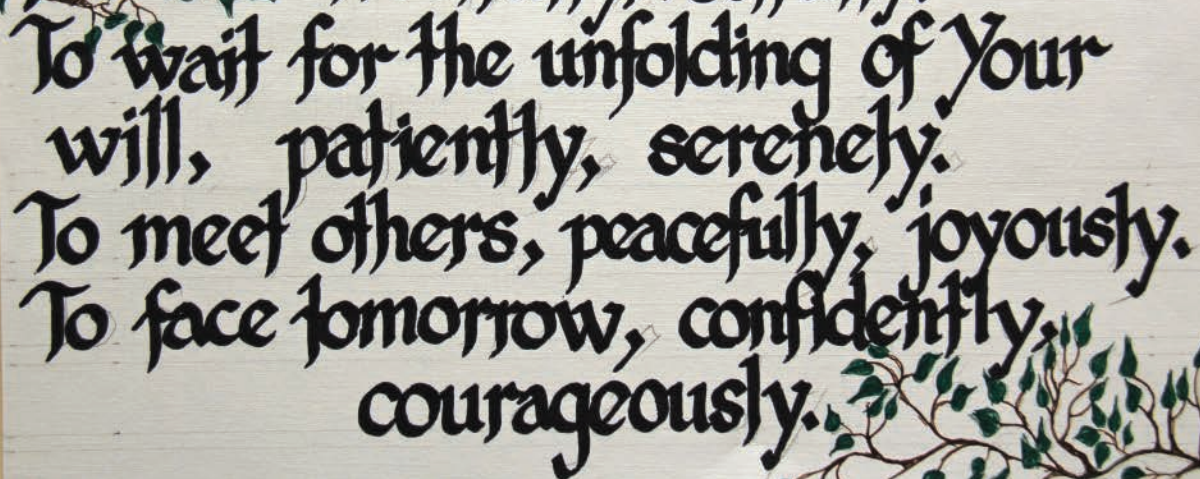 To wait for the unfolding of Your
will, patiently, serenely.
To meet others, peacefully, joyously.
To face tomorrow, confidently,
courageously.